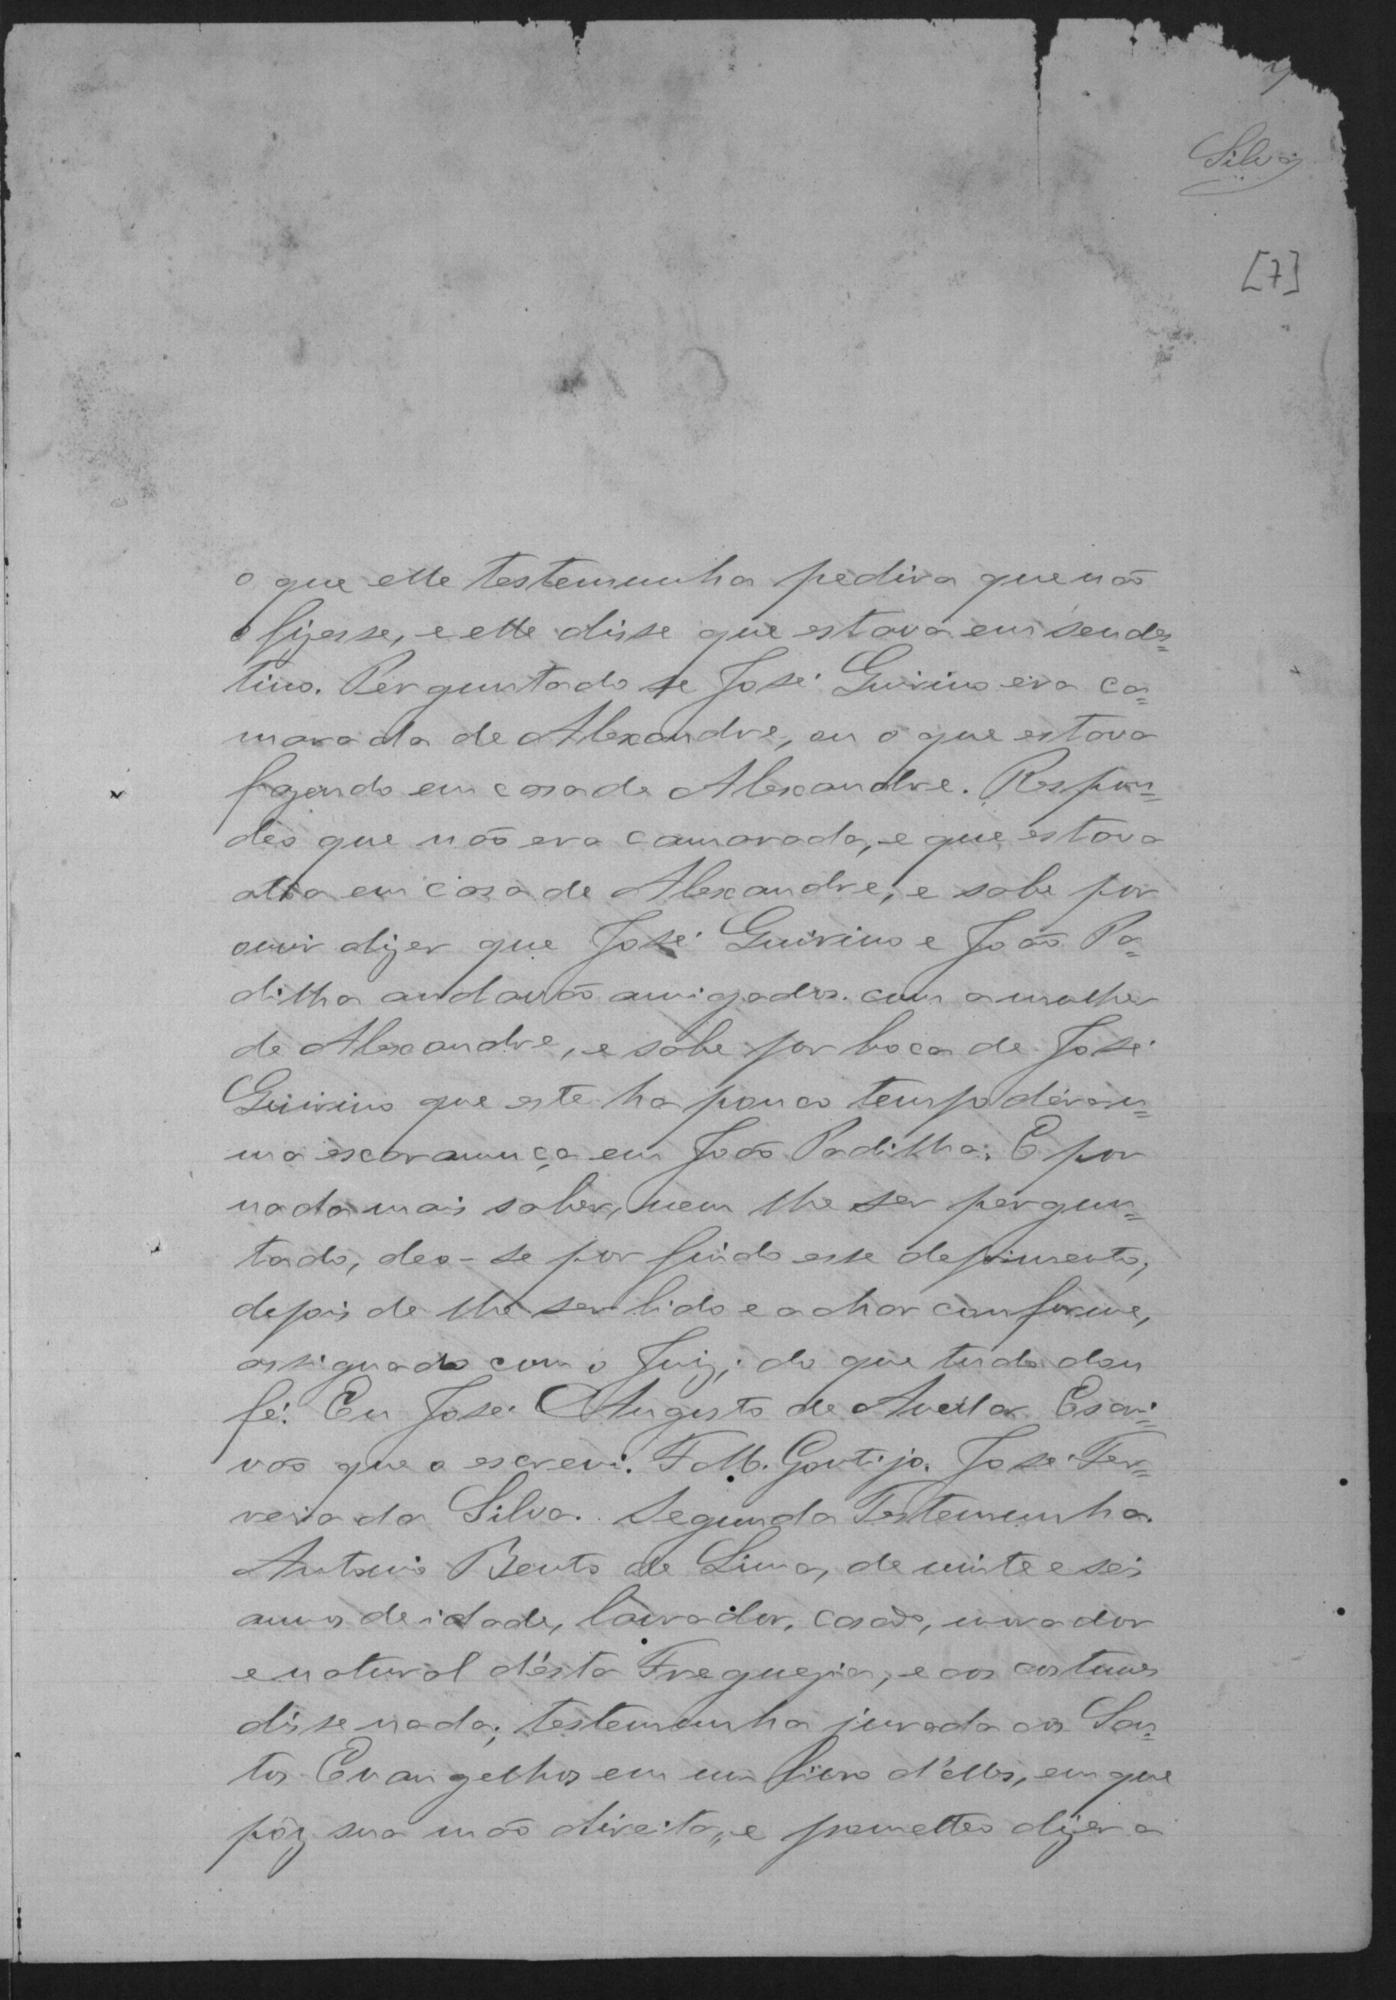 7
Silva
[7]
o que elle testemunha pedira que não
o fizesse, e elle disse que estava em seu des=
tino. Perguntado se José Guirino era ca=
marada de Alexandre, ou o que estava
fazendo em casa de Alexandre. Respon=
deo que não era camarada, e que estava
atôa em casa de Alexandre; e sabe por
ouvir dizer que José Guirino e João Pa=
dilha andavão amigados com a mulher
de Alexandre, e sabe por boca de José
Guirino que este ha pouco tempo déra u=
ma escaramuça em João Padilha. E por
nada mais saber, nem lhe ser pergun=
tado, deo-se por findo esse depoimento,
depois de lhe ser lido e achar conforme,
assignado com o Juiz; do que tudo dou
fé. Eu José Augusto de Avellar Escri=
vão que o escrevi. F. M. Gontijo. José Fer=
reira da Silva. Segunda Testemunha.
Antonio Bento de Lima, de vinte e seis
annos de idade, lavrador, casado, morador
e natural d'ésta Freguezia, e aos costumes
disse nada; testemunha jurada aos San=
tos Evangelhos em um livro d'élles, em que
pôz sua mão direita, e prometteo dizer a